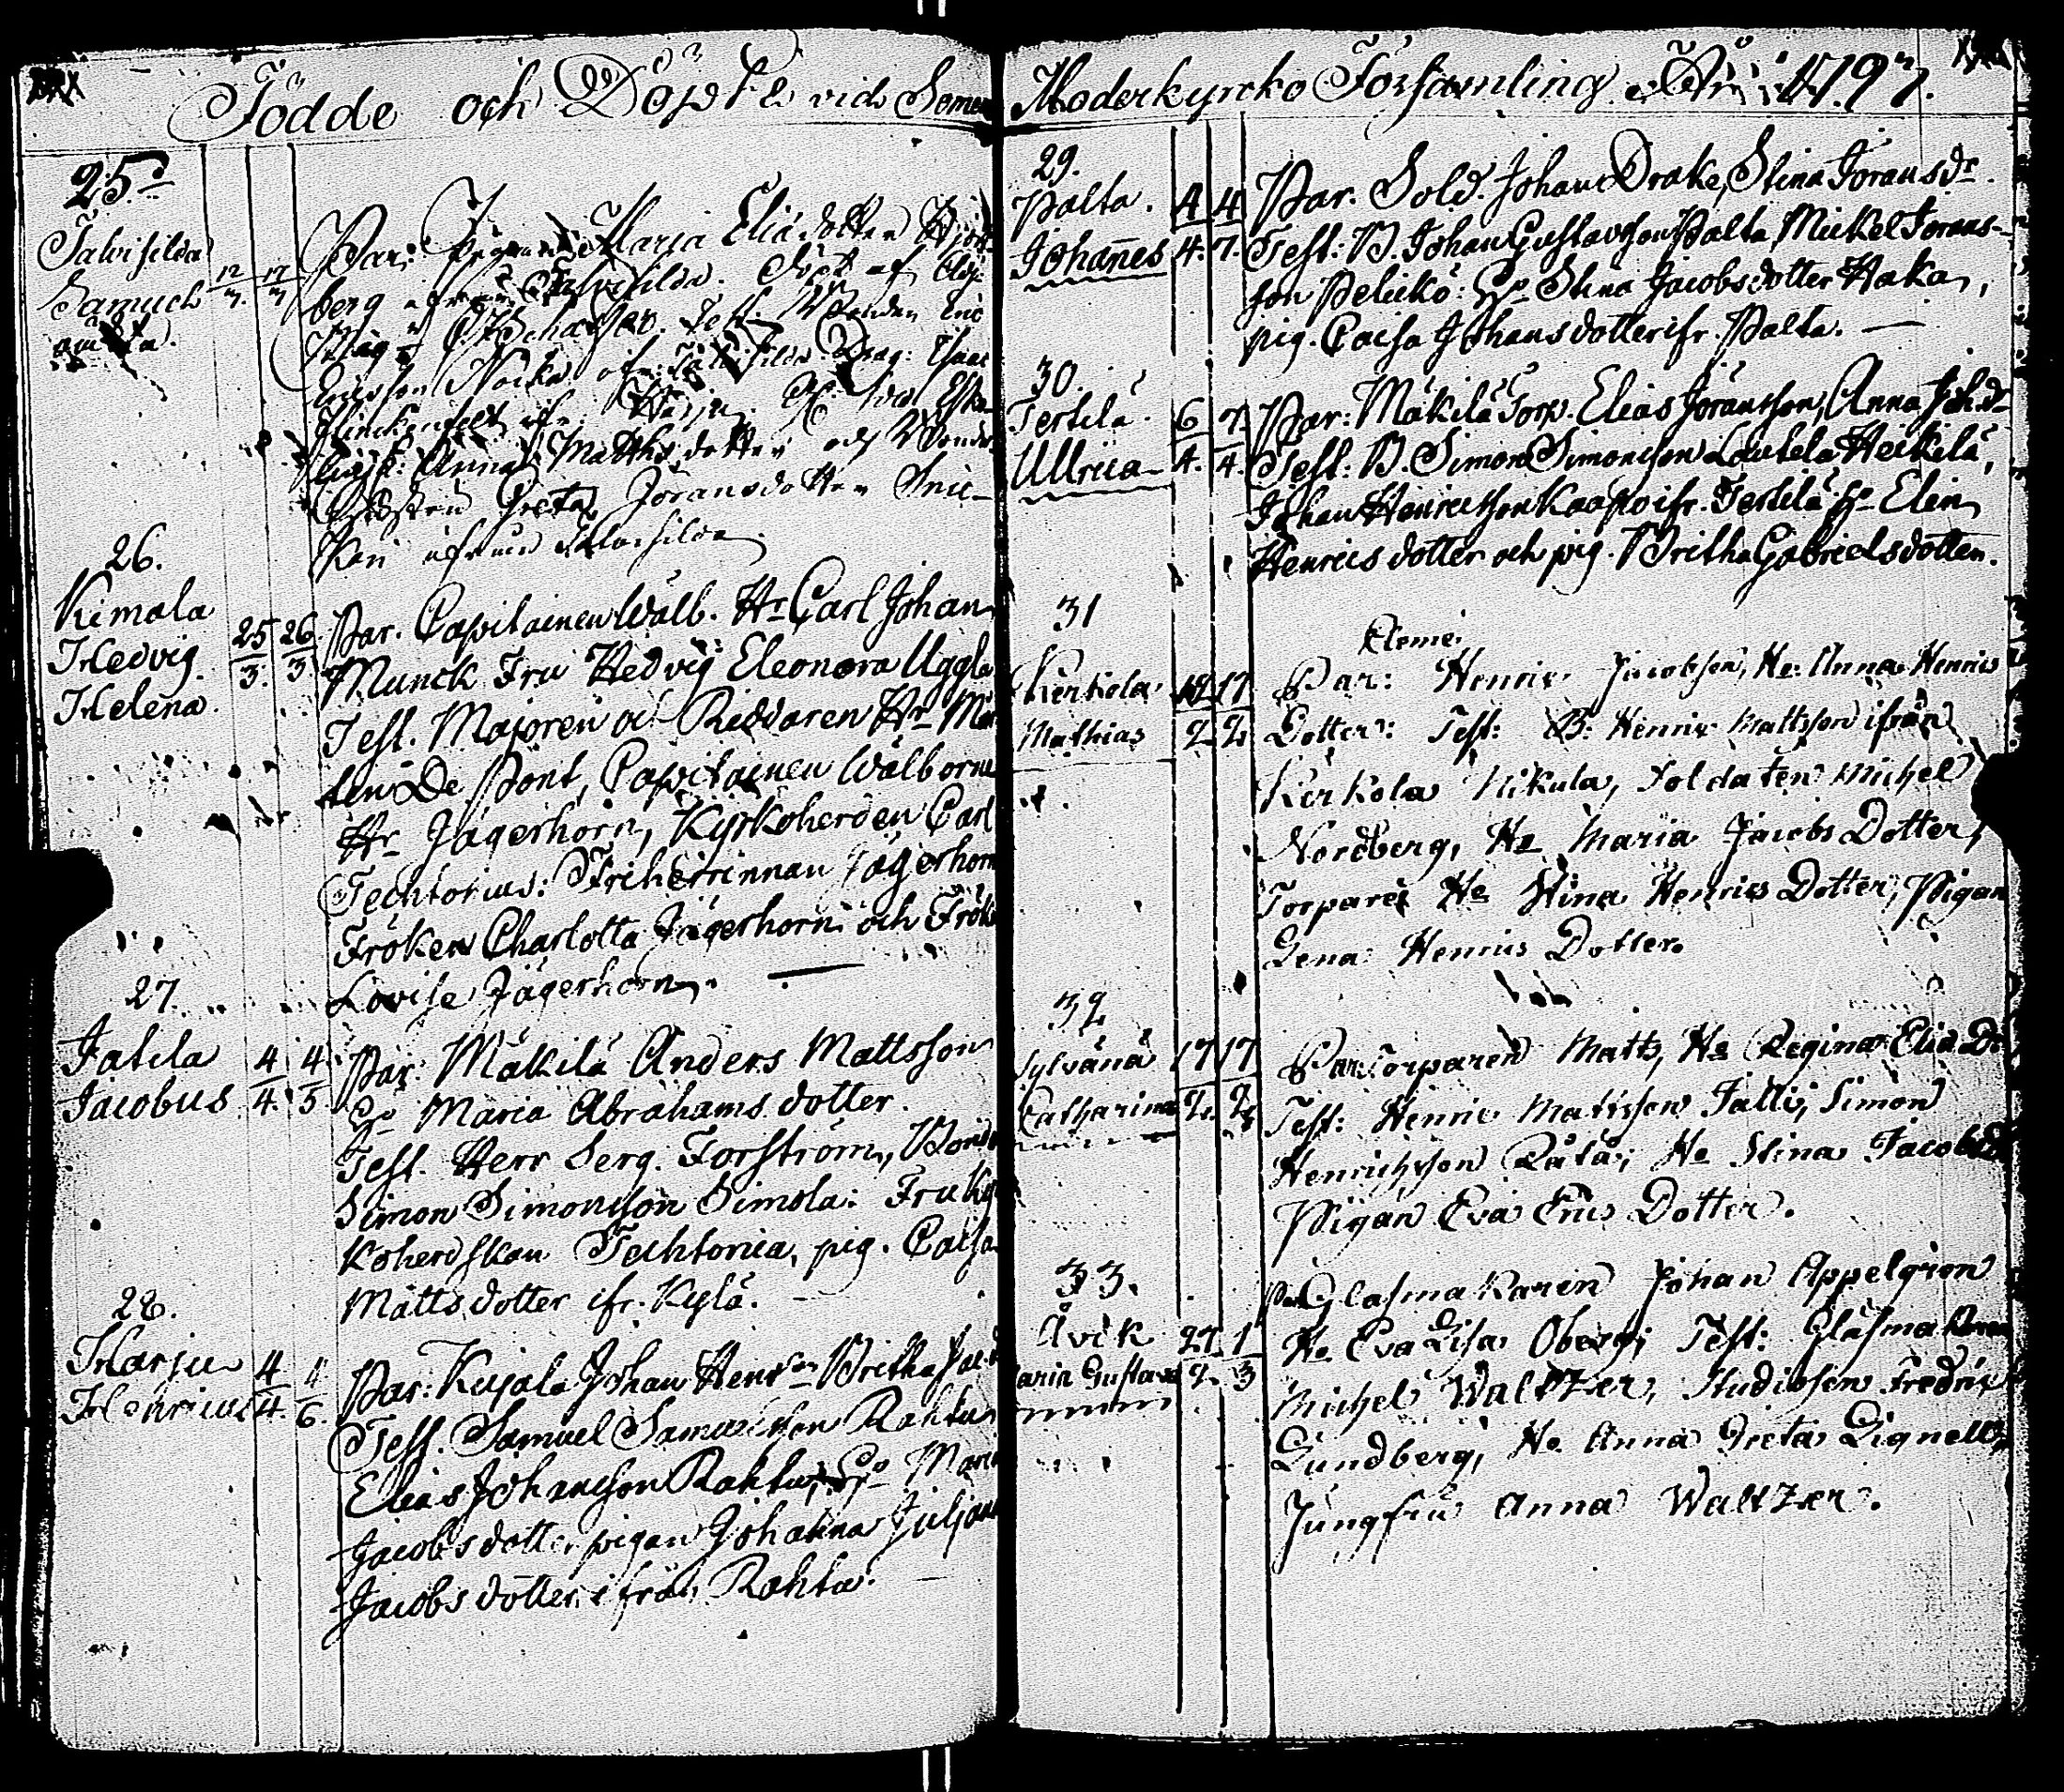 Födde och Döpte vid Somero Moderkyrcko Församling År 1797.
25.
Talvisilda
Samuel
oäkta.
12/3. 17/3
Par: Pigan Maria Eliædotter Hjort
berg ifrån Talvisilda. Döpt af Adj:
Mag: Schæfer. Test. Bonden Eric
Ericsson Nocka ifr. Talvisilda. Drag: Isaac
Flinckenfelt ifr. Harju.
Anna Matthsdotter och Bonde
hustrun Greta Jöransdotter
ifrån Talvisilda.
26.
Kimala
Hedvig
Helena.
25/3. 26/3.
Par. Capitainen Wälb. Hr Carl Johan
Munck Fru Hedvig Eleonora Uggla
Test. Majoren och Riddaren Hr Mår
ten De Pont, Capitainen Wälborne
Hr Jägerhorn, Kyrkoherden Carl
Techtorius: Friherrinnan Jägerhorn
Fröken Charlotta Jägerhorn och Frök
Lovise Jägerhorn.
27.
Jatila
Jacobus
4/4. 4/5
Par: Mäkilä Anders Mattsson
Ho Maria Abrahams dotter.
Test. Herr Serg. Forström, Bond
Simon Simonsson Simola: Fru Kyr
koherdskan Techtoria, pig. Caisa
Mattsdotter ifr. Kylä.
28.
Harju
Henricus
4/4. 4/6.
Par: Kujala Johan Henrsn Britha Jac.d
Test. Samuel Samuelsson Rahtu
Elias Johansson Rahtu, Ho Maria
Jacobsdotter, pigan Johanna Juljana
Jacobsdotter ifrån Rahtu.
29.
Palta.
Johannes
4/4. 4/7.
Par. Sold. Johan Drake, Stina Jöransdr.
Test: B. Johan Gustavsson Palta, Mickel Jörans-
son Pelickö: Ho Stina Jacobsdotter Haka,
pig. Caisa Johansdotter ifr. Palta. —
30.
Tertilä.
Ullrica
6/4. 7/4.
Par: Mäkilä Torp. Elias Jöransson, Anna Joh.dr
Test: B. Simon Simonsson Lautela Heikilä,
Johan Henricsson Kaapo ifr. Tertilä: Ho Elin
Henricsdotter och pig. Britha Gabrielsdotter.
31
Kerkola
Mathias
17/2
Par: Henric Jacobsson, Ho: Anna Henrics
Dotter: Test: B: Henric Mattsson ifrån
Kerkola Nikula, Soldaten Michel
Nordberg, Ho Maria Jacobs Dotter,
Torpare Ho Stina Henrics Dotter, Pigan
Lena Henrics Dotter.
32
Sylvänä
Catharina
17/2. 17/2
Par: Torparen Matts, Ho Regina Eliæ Dr
Test: Henric Mattsson Talli, Simon
Henrichsson Rätä; Ho Stina Jacobs
Pigan Eva Erics Dotter.
33.
Åvik
Maria Gustava
27/2. 1/3
Par: Glasmakaren Johan Appelgren
Ho Eva Lisa Öberg; Test: Glasmakaren
Michel Waltzer, Studiosen Fredric
Lundberg, Ho Anna Greta Lignell,
Jungfru Anna Waltzer.